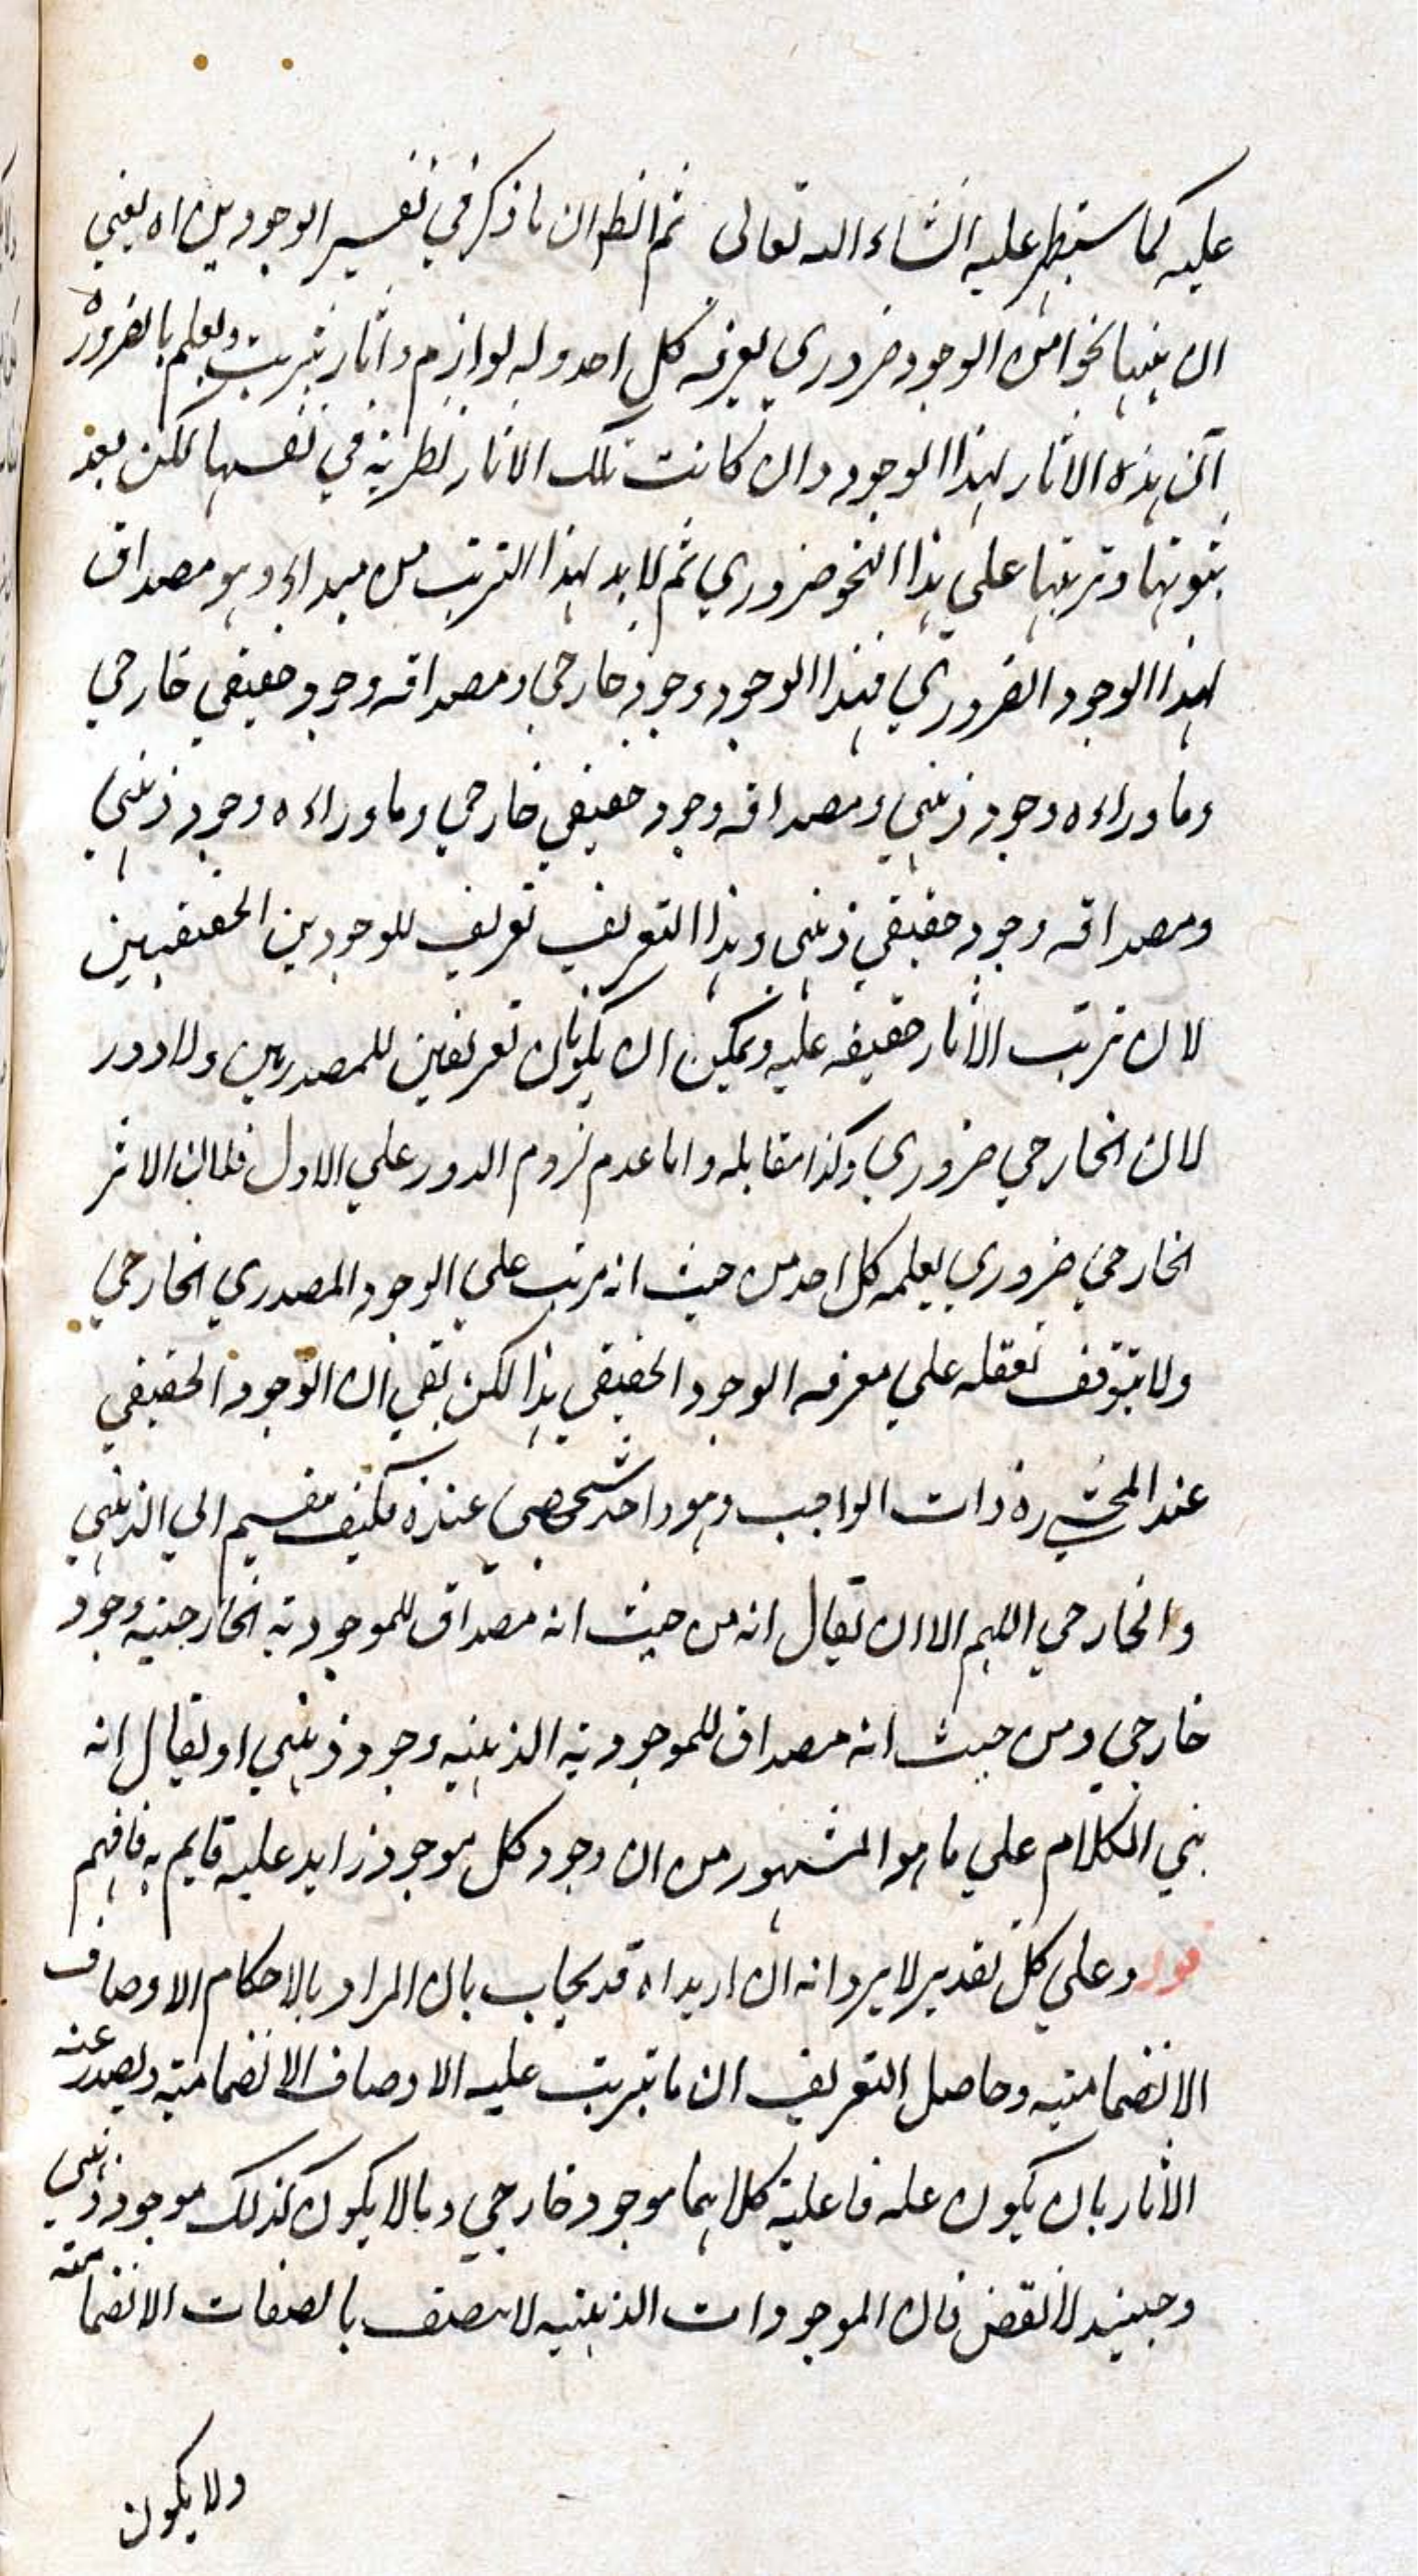 عليه كما ستطر عليه انشاء الله تعالى ثم انظر ان ما ذكر في تفسير الوجودين اه يعني
ان بينها نحوا من الوجود ضروري يعرفه كل احد وله لوازم واثار يترتب ويعلم بالضرورة
ان هذه الاثار لهذا الوجود وان كانت تلك الاثار نظرية في نفسها لكن بعد
ثبوتها وترتبها على هذا النحو ضروري ثم لا بد لهذا الترتب من مبداء وهو مصداق
لهذا الوجود الضروري فهذا الوجود وجود خارجي ومصداقه وجود حقيقي خارجي
وما وراءه وجود ذهني ومصداقه وجود حقيقي خارجي وما وراءه وجود ذهني
ومصداقه وجود حقيقي ذهني وهذا التعريف تعريف للوجودين الحقيقيين
لان ترتب الاثار حقيقه عليه ويمكن ان يكونا تعريفين للمصدريين ولا دور
لان الخارجي ضروري وكذا مقابله واما عدم لزوم الدور على الاول فلان الاثر
الخارجي ضروري يعلمه كل احد من حيث انه مرتب على الوجود المصدري الخارجي
ولا يتوقف تعقله على معرفه الوجود الحقيقي هذا لكن بقي ان الوجود الحقيقي
عند المحشي ره ذات الواجب وهو واحد شخصي عنده فكيف ينقسم الى الذهني
والخارجي اللهم الا ان يقال انه من حيث انه مصداق للموجودية الخارجية وجود
خارجي ومن حيث انه مصداق للموجودية الذهنيه وجود ذهني او يقال انه
بني الكلام على ما هو المشهور من ان وجود كل موجود زايد عليه قايم به فافهم
قوله وعلى كل تقدير لا يرد انه ان اريد اه قد يجاب بان المراد بالاحكام الاوصاف
الانضمامية وحاصل التعريف ان ما يترتب عليه الاوصاف الانضمامية ويصدر عنه
الاثار بان يكون علة فاعلية كلاهما موجود خارجي وما لا يكون كذلك موجود ذهني
وحينئذ لا نقض فان الموجودات الذهنيه لا تتصف بالصفات الانضمامية
ولا يكون